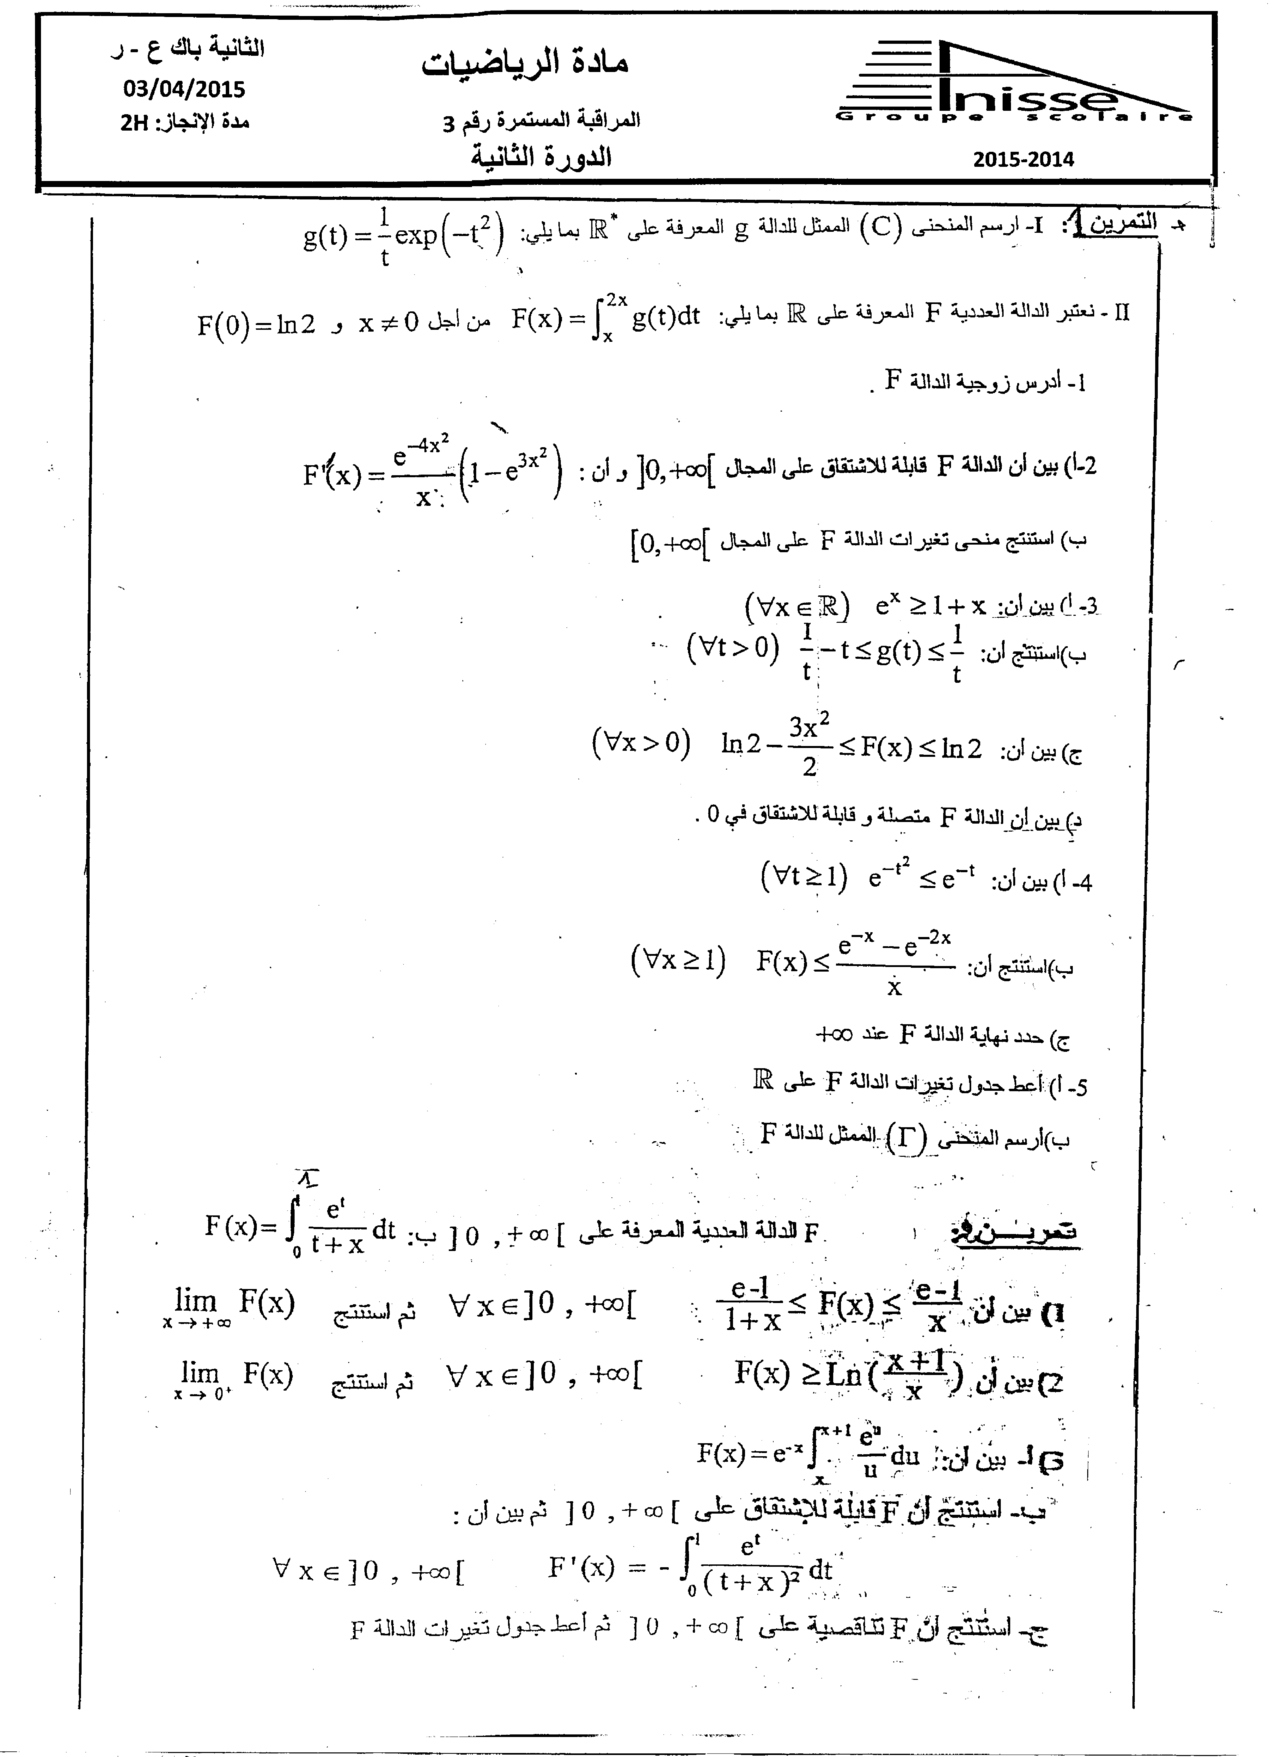 الثانية باك ع - ر
03/04/2015
مدة الإنجاز: 2H
مادة الرياضيات
المراقبة المستمرة رقم 3
الدورة الثانية
Inisse
Groupe scolaire
2015-2014
التمرين 1: I- ارسم المنحنى (C) الممثل للدالة g المعرفة على ℝ* بما يلي: g(t) = 1/t exp(-t²)
II - نعتبر الدالة العددية F المعرفة على ℝ بما يلي: F(x) = ∫ₓ²ˣ g(t)dt من أجل x ≠ 0 و F(0) = ln2
1- أدرس زوجية الدالة F .
2-أ) بين أن الدالة F قابلة للاشتقاق على المجال ]0,+∞[ و أن : F'(x) = e^(-4x²)/x (1 - e^(3x²))
ب) استنتج منحى تغيرات الدالة F على المجال [0,+∞[
3- أ) بين أن: e^x ≥ 1 + x (∀x ∈ ℝ)
ب)استنتج أن: 1/t - t ≤ g(t) ≤ 1/t (∀t > 0)
ج) بين أن: ln2 - 3x²/2 ≤ F(x) ≤ ln2 (∀x > 0)
د) بين أن الدالة F متصلة و قابلة للاشتقاق في 0 .
4- أ) بين أن: e^(-t²) ≤ e^(-t) (∀t ≥ 1)
ب)استنتج أن: F(x) ≤ (e^(-x) - e^(-2x))/x (∀x ≥ 1)
ج) حدد نهاية الدالة F عند +∞
5- أ) أعط جدول تغيرات الدالة F على ℝ
ب)أرسم المنحنى (Γ) الممثل للدالة F
تمريـــن 2: F الدالة العددية المعرفة على ]0 , +∞[ ب: F(x) = ∫₀¹ e^t/(t+x) dt
1) بين أن (e-1)/(1+x) ≤ F(x) ≤ (e-1)/x ∀x∈]0 , +∞[ ثم استنتج lim x→+∞ F(x)
2) بين أن F(x) ≥ Ln((x+1)/x) ∀x∈]0 , +∞[ ثم استنتج lim x→0⁺ F(x)
3) أ- بين أن: F(x) = e^(-x) ∫ₓ^(x+1) e^u/u du
ب- استنتج أن F قابلة للإشتقاق على ]0 , +∞[ ثم بين أن :
F'(x) = - ∫₀¹ e^t/(t+x)² dt ∀x∈]0 , +∞[
ج- استنتج أن F تناقصية على ]0 , +∞[ ثم أعط جدول تغيرات الدالة F